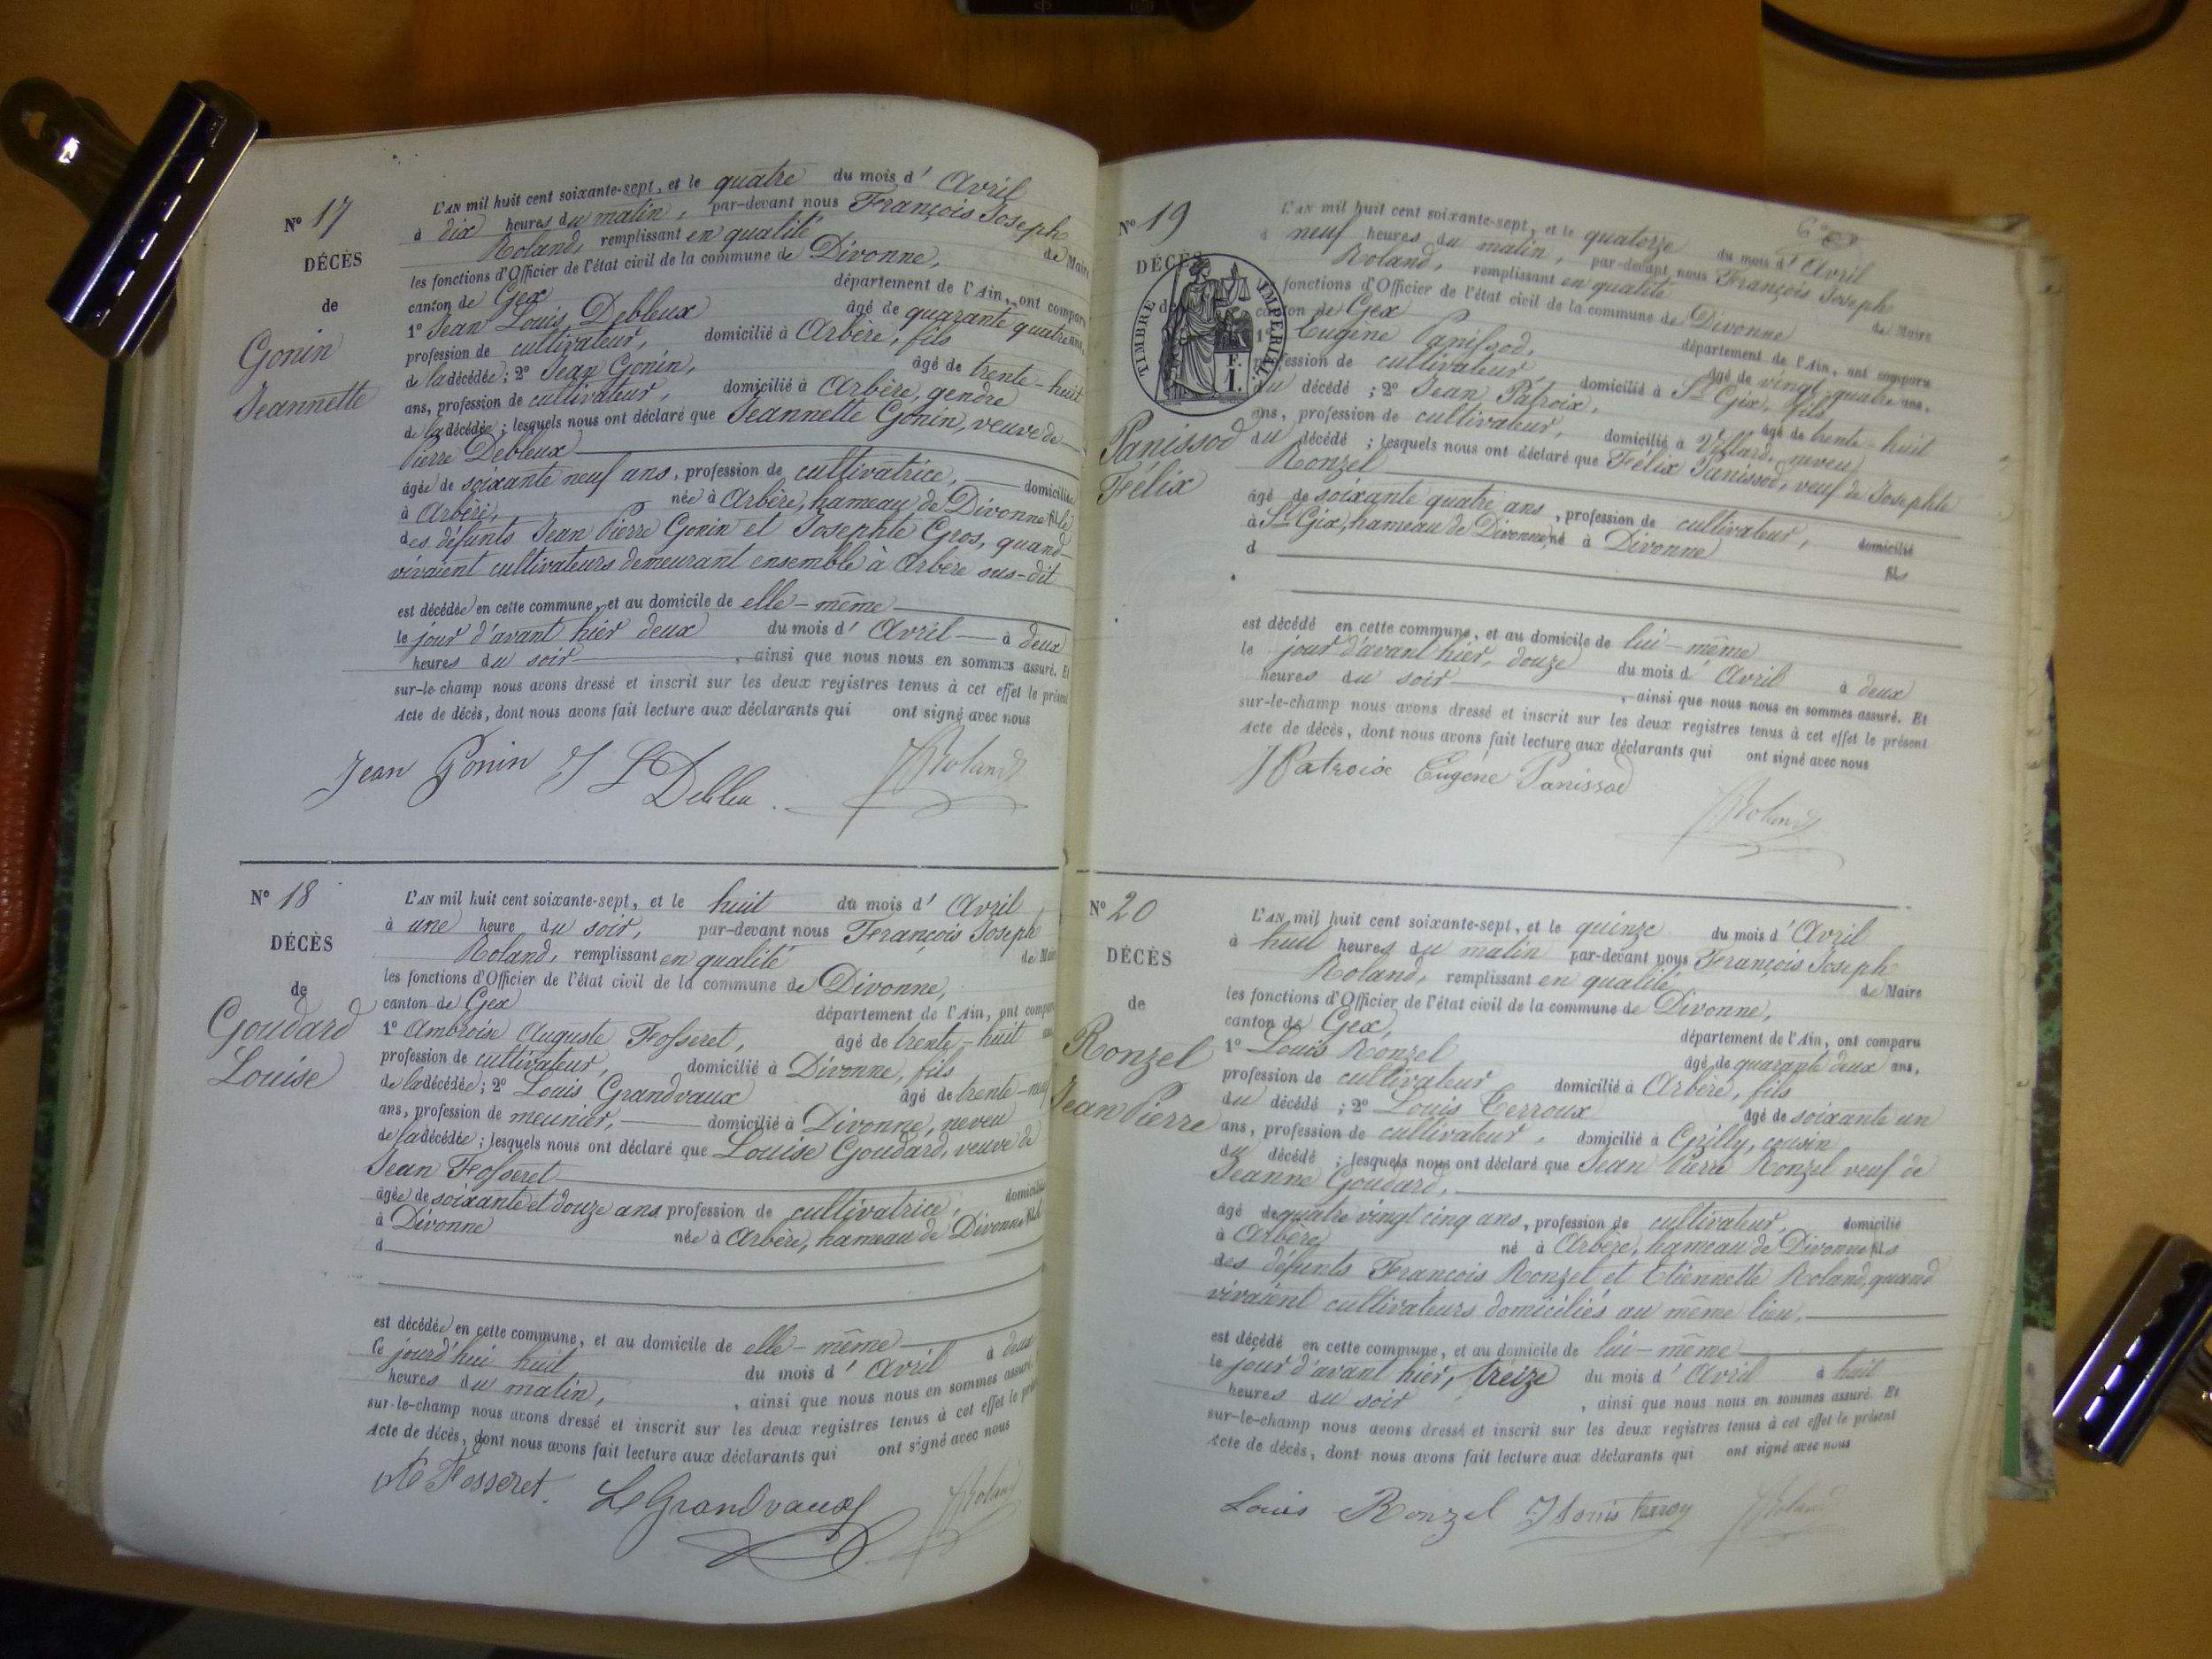 N° 17
DÉCÈS
de
Gonin
Jeannette
L'AN mil huit cent soixante-sept, et le quatre du mois d' Avril
à dix heures du matin, par-devant nous François Joseph
Roland, remplissant en qualité de Maire
les fonctions d'Officier de l'état civil de la commune de Divonne,
canton de Gex département de l'Ain, ont comparu
1° Jean Louis Debleux âgé de quarante quatre ans,
profession de cultivateur, domicilié à Arbère, fils
de la décédée; 2° Jean Gonin, âgé de trente-huit
ans, profession de cultivateur, domicilié à Arbère, gendre
de la décédée; lesquels nous ont déclaré que Jeannette Gonin, veuve de
Pierre Debleux
âgée de soixante neuf ans, profession de cultivatrice, domiciliée
à Arbère, née à Arbère, hameau de Divonne fille
des défunts Jean Pierre Gonin et Josephte Gros, quand
vivaient cultivateurs demeurant ensemble à Arbère sus-dit
est décédée en cette commune, et au domicile de elle-même
le jour d'avant hier deux du mois d' Avril à deux
heures du soir, ainsi que nous nous en sommes assuré. Et
sur-le-champ nous avons dressé et inscrit sur les deux registres tenus à cet effet le présent
Acte de décès, dont nous avons fait lecture aux déclarants qui ont signé avec nous
Jean Gonin J L Debleu. JRoland
N° 18
DÉCÈS
de
Goudard
Louise
L'AN mil huit cent soixante-sept, et le huit du mois d' Avril
à une heure du soir, par-devant nous François Joseph
Roland, remplissant en qualité de Mair
les fonctions d'Officier de l'état civil de la commune de Divonne,
canton de Gex département de l'Ain, ont compar
1° Ambroise Auguste Fosseret, âgé de trente-huit ans
profession de cultivateur, domicilié à Divonne, fils
de la décédée; 2° Louis Grandvaux âgé de trente-neuf
ans, profession de meunier, domicilié à Divonne, neveu
de la décédée; lesquels nous ont déclaré que Louise Goudard, veuve de
Jean Fosseret
âgée de soixante et douze ans profession de cultivatrice, domiciliée
à Divonne née à Arbère, hameau de Divonne fille
d
est décédée en cette commune, et au domicile de elle-même
le jourd'hui huit du mois d' Avril à deux
heures du matin, ainsi que nous nous en sommes assuré.
sur-le-champ nous avons dressé et inscrit sur les deux registres tenus à cet effet le présent
Acte de décès, dont nous avons fait lecture aux déclarants qui ont signé avec nous
Fosseret. LGrandvaux JRoland
N° 19
DÉCÈS
de
TIMBRE IMPÉRIAL
F.
I.
Panissod
Félix
L'AN mil huit cent soixante-sept, et le quatorze du mois d' Avril
à neuf heures du matin, par-devant nous François Joseph
Roland, remplissant en qualité de Maire
fonctions d'Officier de l'état civil de la commune de Divonne
canton de Gex département de l'Ain, ont comparu
1° Eugène Panissod, âgé de vingt quatre ans,
profession de cultivateur, domicilié à St Gix, fils
du décédé; 2° Jean Patroix, âgé de trente-huit
ans, profession de cultivateur, domicilié à Villard, neveu
du décédé; lesquels nous ont déclaré que Félix Panissod, veuf de Josephte
Ronzel
âgé de soixante quatre ans, profession de cultivateur, domicilié
à St Gix, hameau de Divonne, né à Divonne fils
d
est décédé en cette commune, et au domicile de lui-même
le jour d'avant hier, douze du mois d' Avril à deux
heures du soir, ainsi que nous nous en sommes assuré. Et
sur-le-champ nous avons dressé et inscrit sur les deux registres tenus à cet effet le présent
Acte de décès, dont nous avons fait lecture aux déclarants qui ont signé avec nous
JPatroix Eugène Panissod
JRoland
N° 20
DÉCÈS
de
Ronzel
Jean Pierre
L'AN mil huit cent soixante-sept, et le quinze du mois d' Avril
à huit heures du matin par-devant nous François Joseph
Roland, remplissant en qualité de Maire
les fonctions d'Officier de l'état civil de la commune de Divonne,
canton de Gex, département de l'Ain, ont comparu
1° Louis Ronzel âgé de quarante deux ans,
profession de cultivateur domicilié à Arbère, fils
du décédé; 2° Louis Terroux âgé de soixante un
ans, profession de cultivateur, domicilié à Grilly, cousin
du décédé; lesquels nous ont déclaré que Jean Pierre Ronzel veuf de
Jeanne Goudard,
âgé de quatre vingt cinq ans, profession de cultivateur, domicilié
à Arbère né à Arbère, hameau de Divonne fils
des défunts François Ronzel et Etiennette Roland, quand
vivaient cultivateurs domiciliés au même lieu.
est décédé en cette commune, et au domicile de lui-même
le jour d'avant hier, treize du mois d' Avril à huit
heures du soir, ainsi que nous nous en sommes assuré. Et
sur-le-champ nous avons dressé et inscrit sur les deux registres tenus à cet effet le présent
Acte de décès, dont nous avons fait lecture aux déclarants qui ont signé avec nous
Louis Ronzel JLouis Terroy JRoland